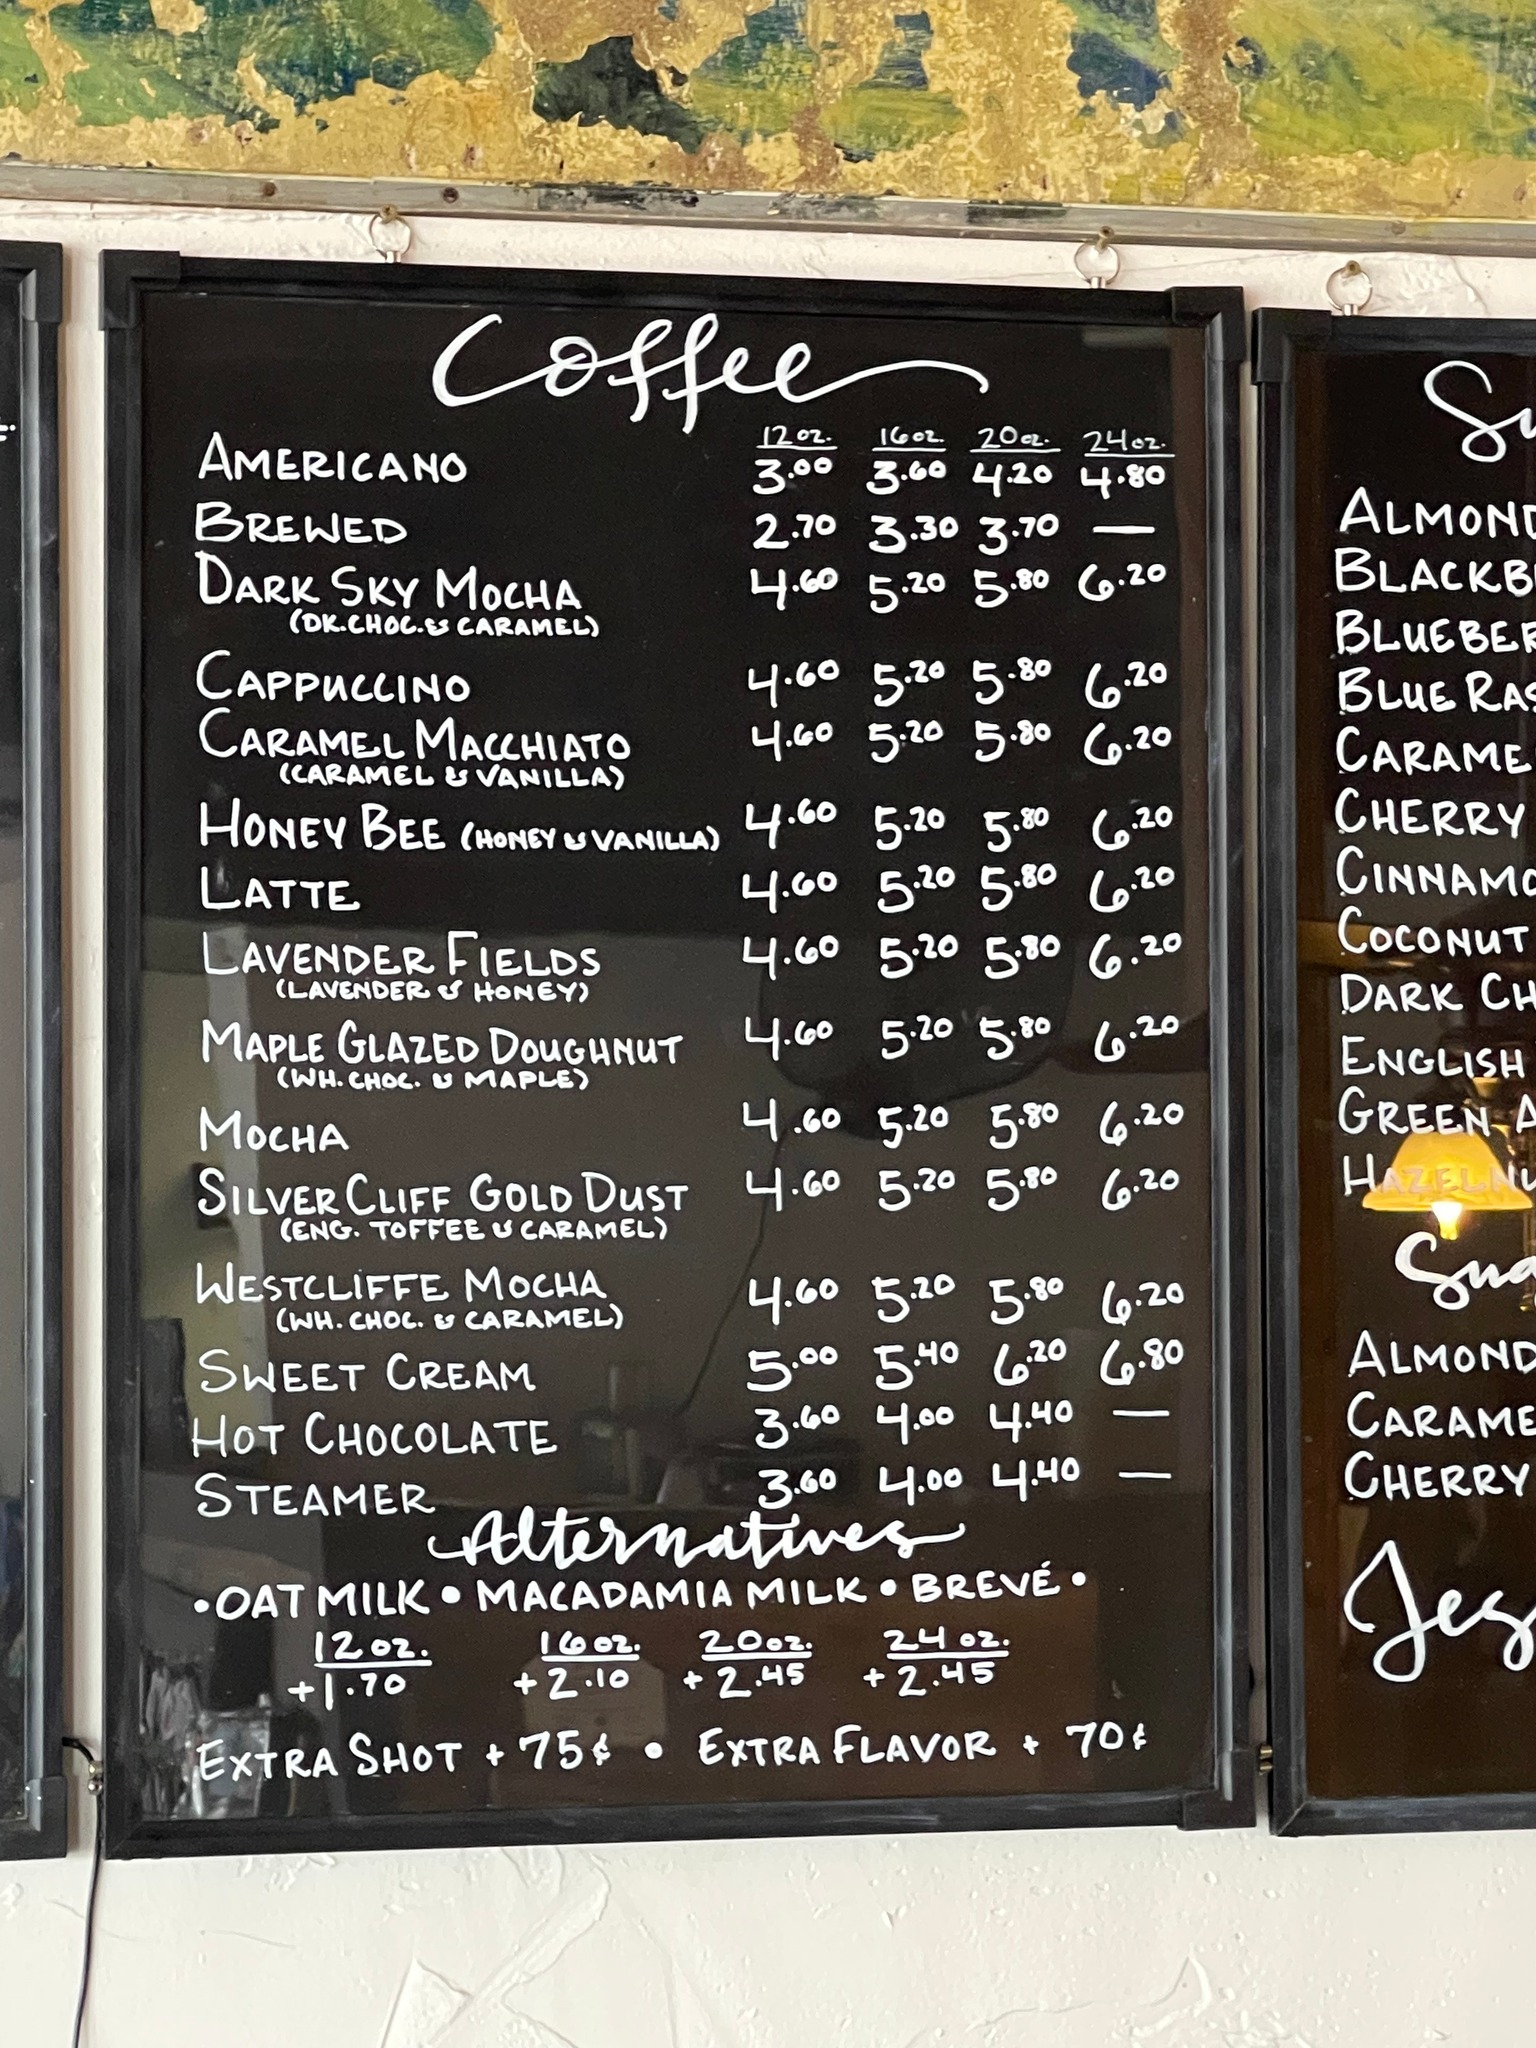 Coffee
12 oz. 16 oz. 20 oz. 24 oz.
AMERICANO 3.00 3.60 4.20 4.80
BREWED 2.70 3.30 3.70 —
DARK SKY MOCHA 4.60 5.20 5.80 6.20
(DK. CHOC. & CARAMEL)
CAPPUCCINO 4.60 5.20 5.80 6.20
CARAMEL MACCHIATO 4.60 5.20 5.80 6.20
(CARAMEL & VANILLA)
HONEY BEE (HONEY & VANILLA) 4.60 5.20 5.80 6.20
LATTE 4.60 5.20 5.80 6.20
LAVENDER FIELDS 4.60 5.20 5.80 6.20
(LAVENDER & HONEY)
MAPLE GLAZED DOUGHNUT 4.60 5.20 5.80 6.20
(WH. CHOC. & MAPLE)
MOCHA 4.60 5.20 5.80 6.20
SILVER CLIFF GOLD DUST 4.60 5.20 5.80 6.20
(ENG. TOFFEE & CARAMEL)
WESTCLIFFE MOCHA 4.60 5.20 5.80 6.20
(WH. CHOC. & CARAMEL)
SWEET CREAM 5.00 5.40 6.20 6.80
HOT CHOCOLATE 3.60 4.00 4.40 —
STEAMER 3.60 4.00 4.40 —
Alternatives
• OAT MILK • MACADAMIA MILK • BREVÉ •
12 oz. 16 oz. 20 oz. 24 oz.
+1.70 +2.10 +2.45 +2.45
EXTRA SHOT + 75¢ • EXTRA FLAVOR + 70¢
ALMOND
BLUE
CHERRY
COCONUT
DARK
ENGLISH
GREEN
ALMOND
CHERRY